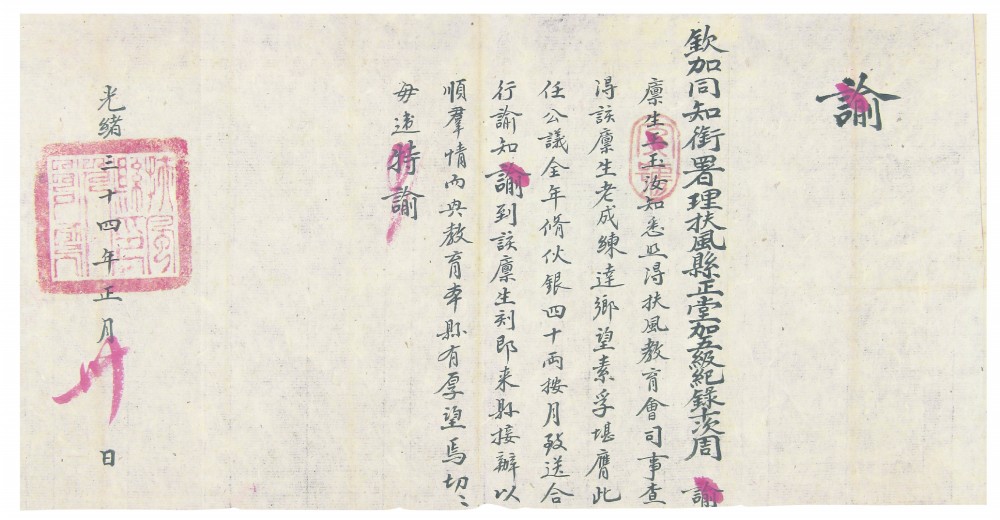 諭
欽加同知銜署理扶風縣正堂加五級紀錄十次周 諭
廪生王玉汝知悉照得扶風教育會司事查
得該廪生老成練達鄉望素孚堪膺此
任公議全年脩伙銀四十兩按月致送合
行諭知諭到該廪生刻即来縣接辦以
順羣情而興教育本縣有厚望焉切〻
毋違特諭
光緒三十四年正月 日